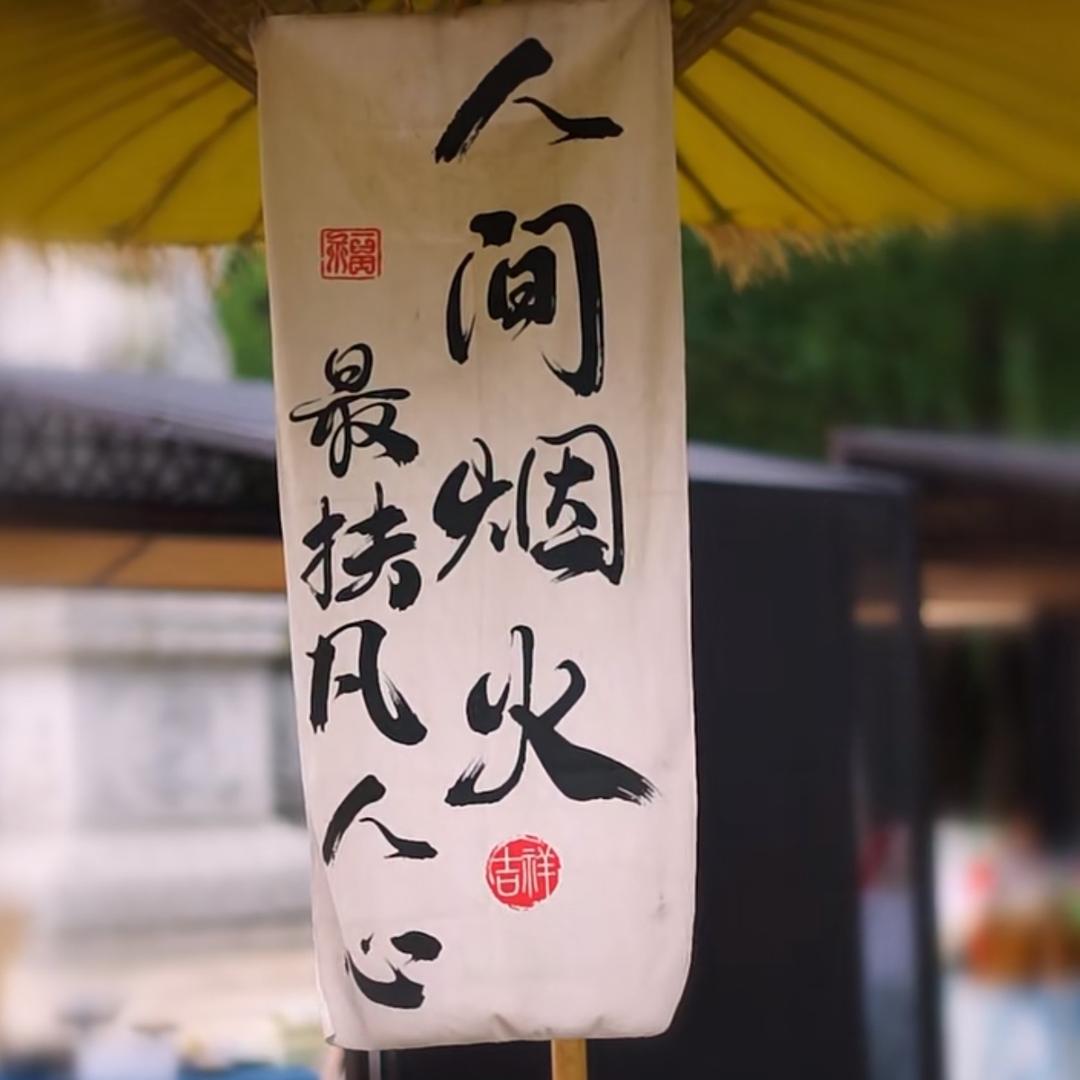 人间烟火
吉祥
福
最扶凡人心